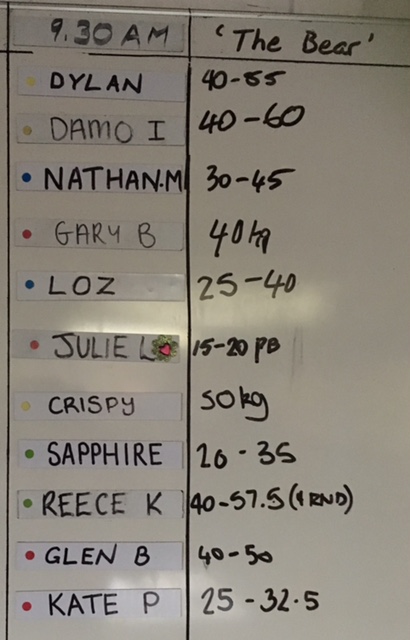 9.30 AM 'The Bear'
DYLAN 40-55
DAMO I 40-60
NATHAN.M 30-45
GARY B 40kg
LOZ 25-40
JULIE L 15-20 PB
CRISPY 50kg
SAPPHIRE 20-35
REECE K 40-57.5 (4 RND)
GLEN B 40-50
KATE P 25-32.5